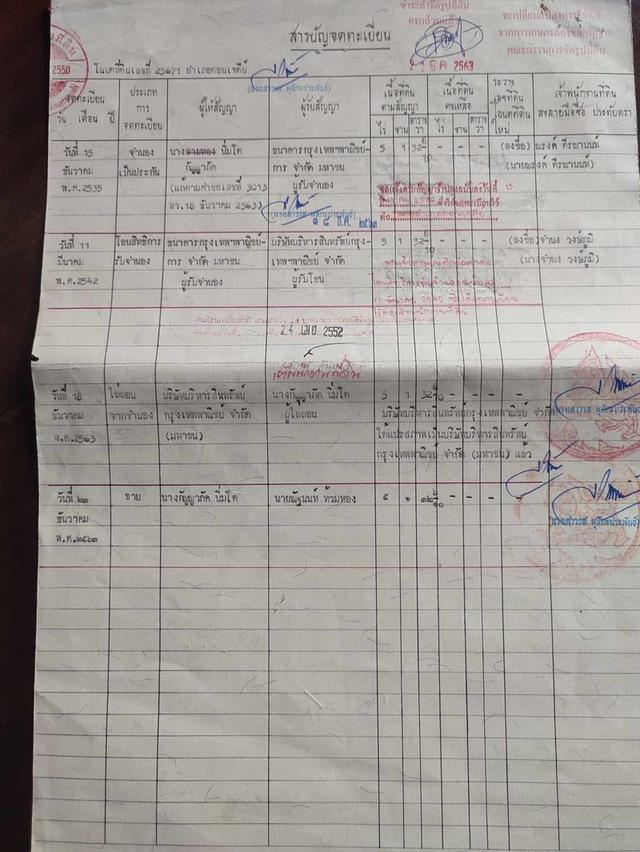 ชำระค่าจัดรูปที่ดิน
ครบถ้วนแล้ว
2 1 ธ.ค. 2563
จะเปลี่ยนแปลงการ
จากการเกษตรต้องขออนุญาต
คณะกรรมการจัดรูปที่ดิน
สารบัญจดทะเบียน
2550
โฉนดที่ดินเลขที่ 25671 อำเภอดอนเจดีย์
จดทะเบียน
วัน เดือน ปี
ประเภท
การ
จดทะเบียน
ผู้ให้สัญญา
ผู้รับสัญญา
เนื้อที่ดิน
ตามสัญญา
ไร่ งาน ตาราง
วา
เนื้อที่ดิน
คงเหลือ
ไร่ งาน ตาราง
วา
ระวาง
เลขที่ดิน
โฉนดที่ดิน
ใหม่
เจ้าพนักงานที่ดิน
ลงลายมือชื่อ ประทับตรา
วันที่ 15 จำนอง นางลานทอง นิ่มโต ธนาคารกรุงเทพฯพาณิชย์- 5 1 32 6/10 - - - - (ลงชื่อ) ณรงค์ ถีรฌานนท์
ธันวาคม เป็นประกัน กัญญาภัค การ จำกัด มหาชน (นายณรงค์ ถีรฌานนท์)
พ.ศ.2535 (แก้ตามคำขอเลขที่ 3013 ผู้รับจำนอง
ลว.18 ธันวาคม 2563)
๑๘ ธ.ค. ๒๕๖๓
วันที่ 11 โอนสิทธิการ ธนาคารกรุงเทพฯพาณิชย์- บริษัทบริหารสินทรัพย์กรุง- 5 1 32 6/10 - - - - (ลงชื่อ) จำนง วงษ์ภูมิ
มีนาคม รับจำนอง การ จำกัด มหาชน เทพฯพาณิชย์ จำกัด (นางจำนง วงษ์ภูมิ)
พ.ศ.2542 ผู้รับจำนอง ผู้รับโอน
24 เมย 2552
เจ้าพนักงานที่ดิน
วันที่ 18 ไถ่ถอน บริษัทบริหารสินทรัพย์ นางกัญญาภัค นิ่มโต 5 1 32 6/10 - - - -
ธันวาคม จากจำนอง กรุงเทพพาณิชย์ จำกัด ผู้ไถ่ถอน บริษัทบริหารสินทรัพย์กรุงเทพพาณิชย์ จำกัด
พ.ศ.2563 (มหาชน) ได้แปรสภาพเป็นบริษัทบริหารสินทรัพย์
กรุงเทพพาณิชย์ จำกัด (มหาชน) แล้ว
วันที่ ๒๓ ขาย นางกัญญาภัค นิ่มโต นายพิฐนนท์ ท้วมทอง ๕ ๑ ๓๒ ๖/๑๐ - - - -
ธันวาคม
พ.ศ.๒๕๖๓